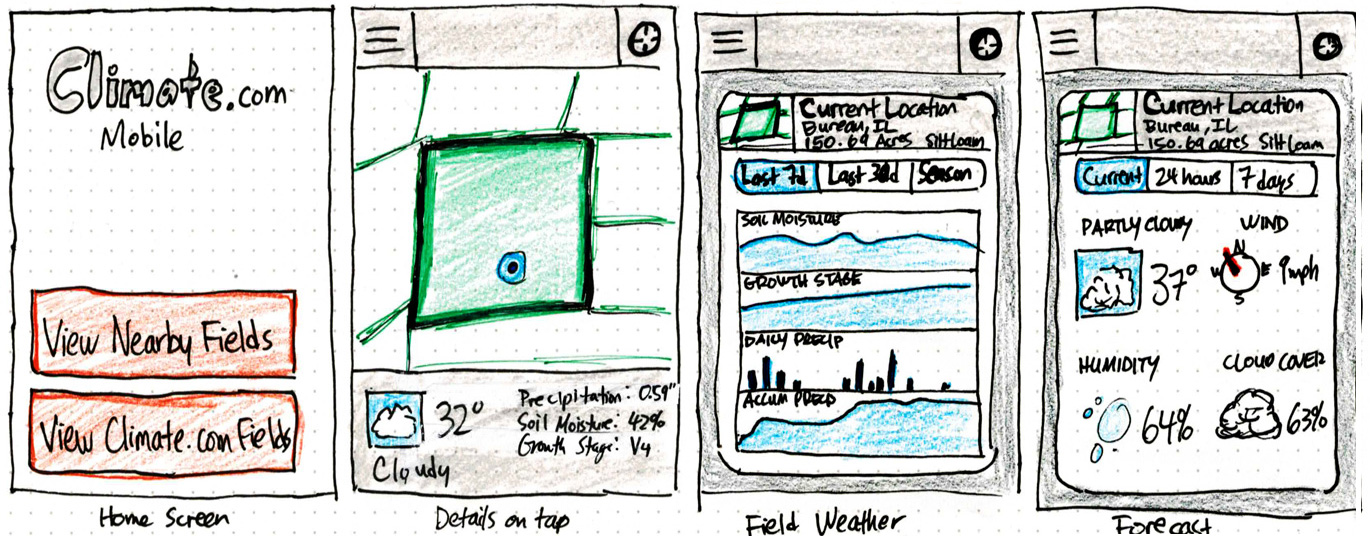 Climate.com
Mobile
View Nearby Fields
View Climate.com Fields
Home Screen
32°
Cloudy
Precipitation: 0.59"
Soil Moisture: 42%
Growth Stage: V4
Details on tap
Current Location
Bureau, IL
150.69 Acres Silt Loam
Last 7d
Last 30d
Season
SOIL MOISTURE
GROWTH STAGE
DAILY PRECIP
ACCUM PRECIP
Field Weather
Current Location
Bureau, IL
150.69 acres Silt Loam
Current
24 hours
7 days
PARTLY CLOUDY
37°
WIND
N
W E
S
9mph
HUMIDITY
64%
CLOUD COVER
63%
Forecast